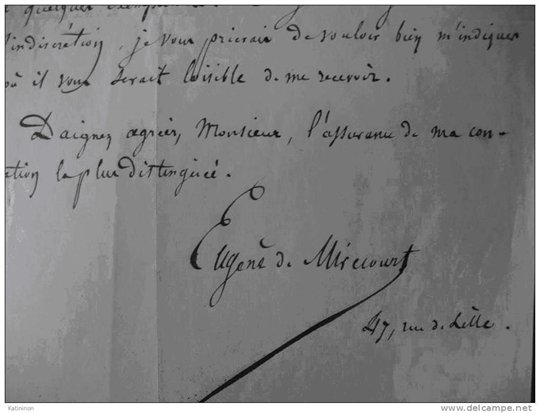 quelques
l'indiscrétion, je vous prierais de vouloir bien m'indiquer
où il vous serait loisible de me recevoir.
Daignez agréer, Monsieur, l'assurance de ma con-
ation la plus distinguée.
Eugène de Mirecourt
47, rue de Lille.
Katininon
www.delcampe.net